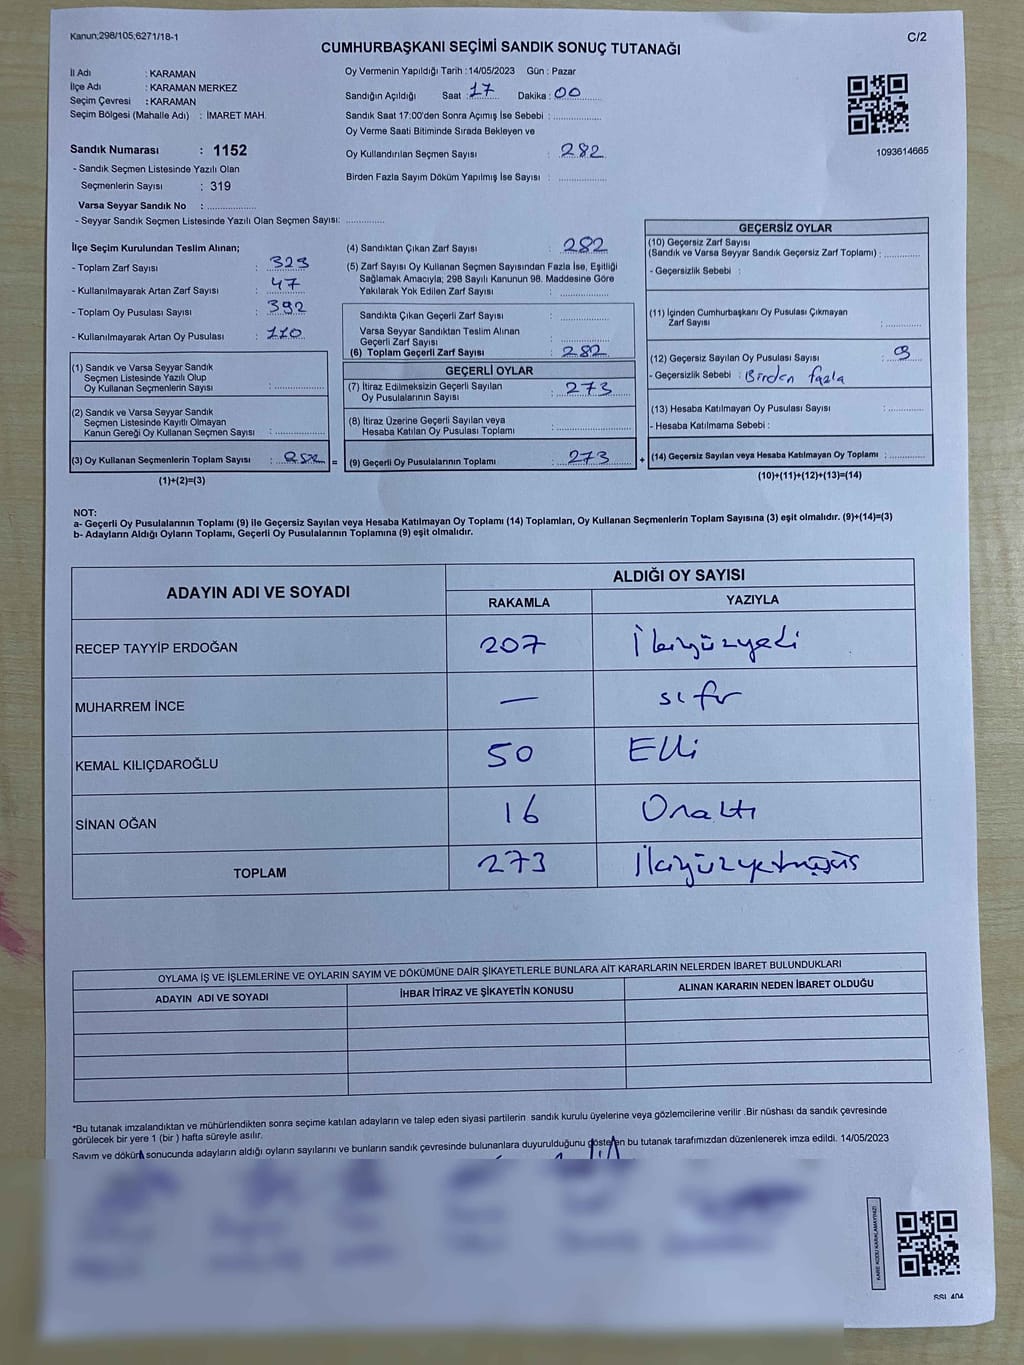 Kanun;298/105;6271/18-1
C/2
CUMHURBAŞKANI SEÇİMİ SANDIK SONUÇ TUTANAĞI
İl Adı : KARAMAN
İlçe Adı : KARAMAN MERKEZ
Seçim Çevresi : KARAMAN
Seçim Bölgesi (Mahalle Adı) : İMARET MAH.
Sandık Numarası : 1152
- Sandık Seçmen Listesinde Yazılı Olan
Seçmenlerin Sayısı : 319
Varsa Seyyar Sandık No : ................
- Seyyar Sandık Seçmen Listesinde Yazılı Olan Seçmen Sayısı: ............
Oy Vermenin Yapıldığı Tarih :14/05/2023 Gün : Pazar
Sandığın Açıldığı Saat : 17 Dakika : 00
Sandık Saat 17:00'den Sonra Açımış İse Sebebi : ................
Oy Verme Saati Bitiminde Sırada Bekleyen ve
Oy Kullandırılan Seçmen Sayısı : 282
Birden Fazla Sayım Döküm Yapılmış İse Sayısı : ................
1093614665
İlçe Seçim Kurulundan Teslim Alınan;
- Toplam Zarf Sayısı : 329
- Kullanılmayarak Artan Zarf Sayısı : 47
- Toplam Oy Pusulası Sayısı : 392
- Kullanılmayarak Artan Oy Pusulası : 110
(1) Sandık ve Varsa Seyyar Sandık
Seçmen Listesinde Yazılı Olup
Oy Kullanan Seçmenlerin Sayısı : ................
(2) Sandık ve Varsa Seyyar Sandık
Seçmen Listesinde Kayıtlı Olmayan
Kanun Gereği Oy Kullanan Seçmen Sayısı : ................
(3) Oy Kullanan Seçmenlerin Toplam Sayısı : 282 =
(1)+(2)=(3)
(4) Sandıktan Çıkan Zarf Sayısı : 282
(5) Zarf Sayısı Oy Kullanan Seçmen Sayısından Fazla İse, Eşitliği
Sağlamak Amacıyla; 298 Sayılı Kanunun 98. Maddesine Göre
Yakılarak Yok Edilen Zarf Sayısı : ................
Sandıkta Çıkan Geçerli Zarf Sayısı : ................
Varsa Seyyar Sandıktan Teslim Alınan
Geçerli Zarf Sayısı : ................
(6) Toplam Geçerli Zarf Sayısı : 282
GEÇERLİ OYLAR
(7) İtiraz Edilmeksizin Geçerli Sayılan
Oy Pusulalarının Sayısı : 273
(8) İtiraz Üzerine Geçerli Sayılan veya
Hesaba Katılan Oy Pusulası Toplamı : ................
(9) Geçerli Oy Pusulalarının Toplamı : 273 +
GEÇERSİZ OYLAR
(10) Geçersiz Zarf Sayısı
(Sandık ve Varsa Seyyar Sandık Geçersiz Zarf Toplamı) : ............
- Geçersizlik Sebebi :
(11) İçinden Cumhurbaşkanı Oy Pusulası Çıkmayan
Zarf Sayısı : ............
(12) Geçersiz Sayılan Oy Pusulası Sayısı : 9
- Geçersizlik Sebebi : Birden fazla
(13) Hesaba Katılmayan Oy Pusulası Sayısı : ............
- Hesaba Katılmama Sebebi :
(14) Geçersiz Sayılan veya Hesaba Katılmayan Oy Toplamı : ............
(10)+(11)+(12)+(13)=(14)
NOT:
a- Geçerli Oy Pusulalarının Toplamı (9) ile Geçersiz Sayılan veya Hesaba Katılmayan Oy Toplamı (14) Toplamları, Oy Kullanan Seçmenlerin Toplam Sayısına (3) eşit olmalıdır. (9)+(14)=(3)
b- Adayların Aldığı Oyların Toplamı, Geçerli Oy Pusulalarının Toplamına (9) eşit olmalıdır.
ADAYIN ADI VE SOYADI ALDIĞI OY SAYISI
RAKAMLA YAZIYLA
RECEP TAYYİP ERDOĞAN 207 İkiyüzyedi
MUHARREM İNCE — sıfır
KEMAL KILIÇDAROĞLU 50 Elli
SİNAN OĞAN 16 Onaltı
TOPLAM 273 İkiyüzyetmişüş
OYLAMA İŞ VE İŞLEMLERİNE VE OYLARIN SAYIM VE DÖKÜMÜNE DAİR ŞİKAYETLERLE BUNLARA AİT KARARLARIN NELERDEN İBARET BULUNDUKLARI
ADAYIN ADI VE SOYADI İHBAR İTİRAZ VE ŞİKAYETİN KONUSU ALINAN KARARIN NEDEN İBARET OLDUĞU
*Bu tutanak imzalandıktan ve mühürlendikten sonra seçime katılan adayların ve talep eden siyasi partilerin sandık kurulu üyelerine veya gözlemcilerine verilir .Bir nüshası da sandık çevresinde
görülecek bir yere 1 (bir ) hafta süreyle asılır.
Sayım ve döküm sonucunda adayların aldığı oyların sayılarını ve bunların sandık çevresinde bulunanlara duyurulduğunu gösteren bu tutanak tarafımızdan düzenlenerek imza edildi. 14/05/2023
KARE KODU KARALAMAYINIZ!
SSI 404